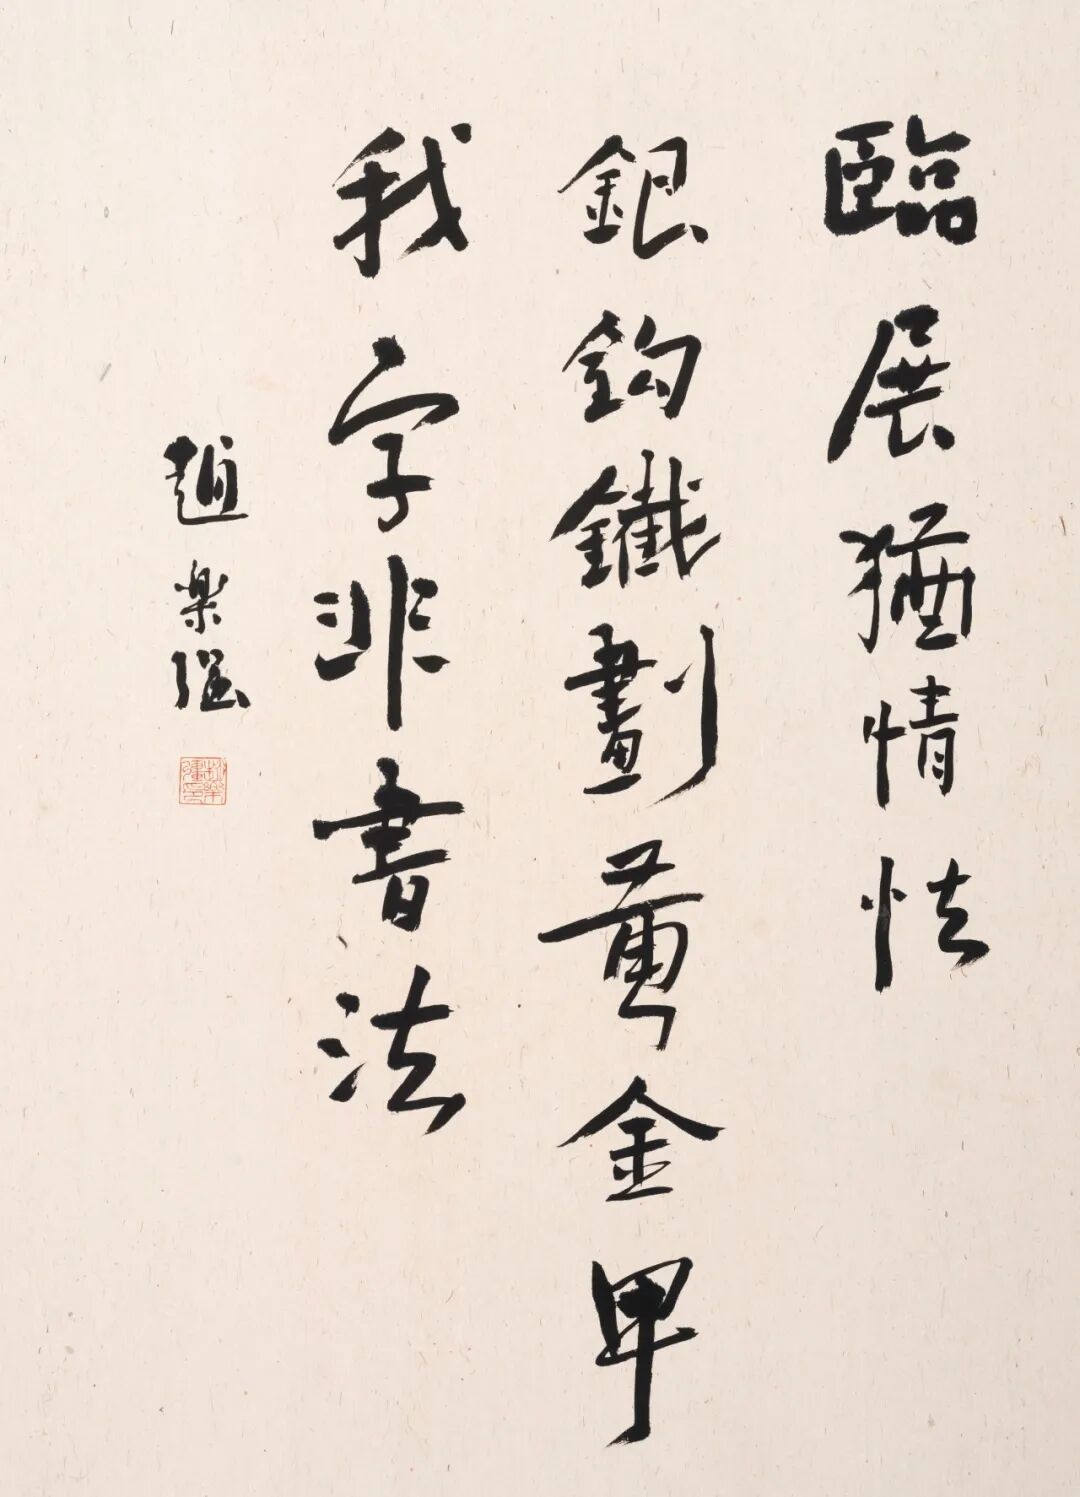 臨展猶情怯
銀鈎鐵劃黃金甲
我字非書法
趙楽强